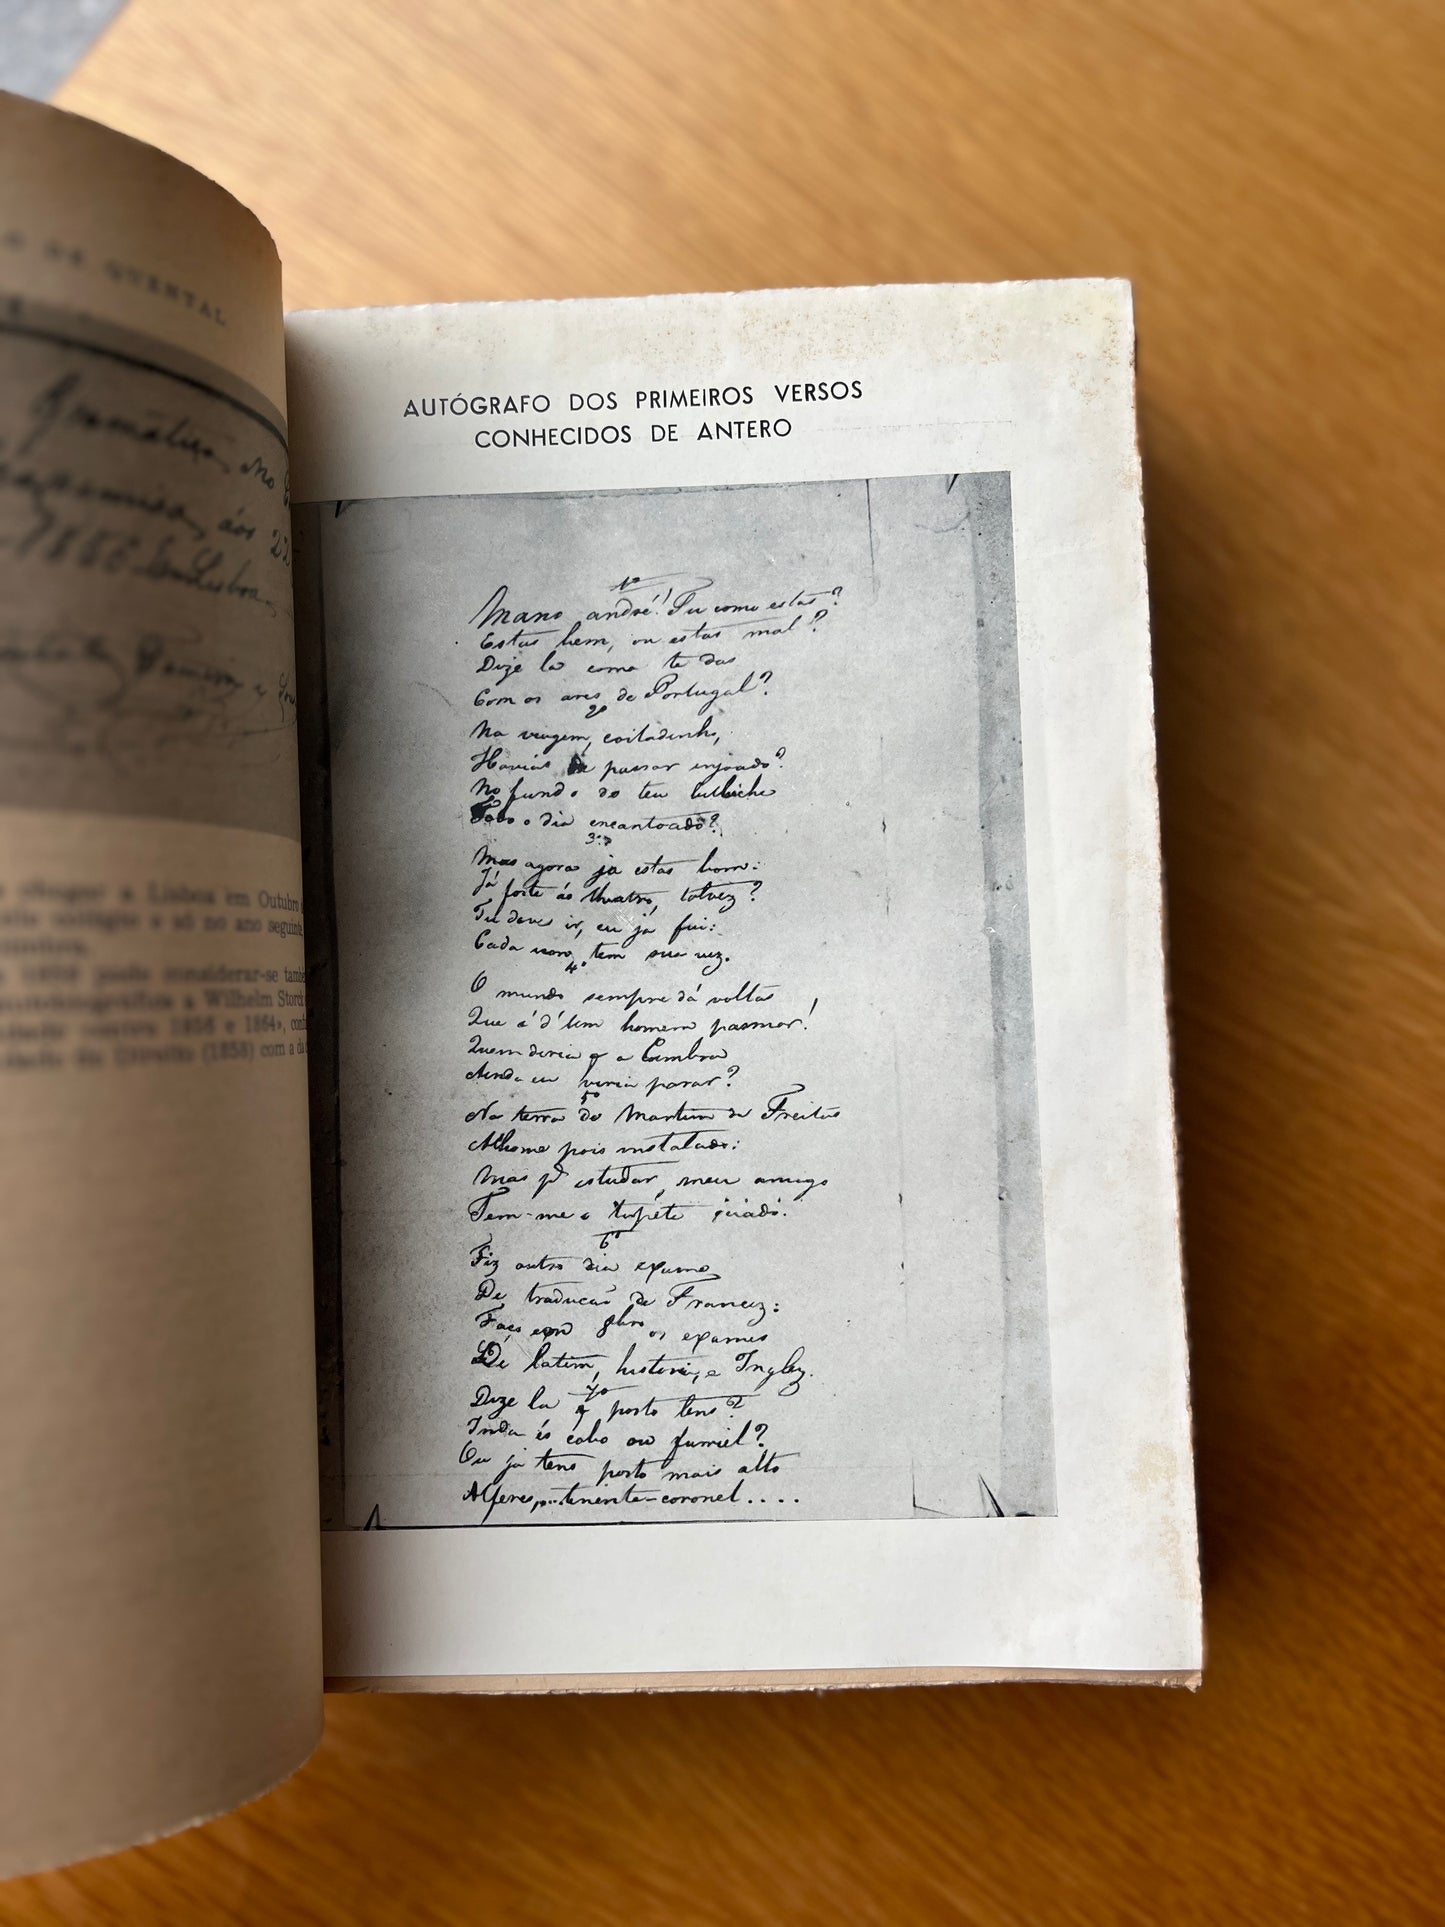 DE QUENTAL
Gramatica, no
aos 22
1856 Lisboa,
a Lisboa em Outubro
e só no ano seguinte
pode considerar-se també
a Wilhelm Storck
1856 e 1864», conf
de Direito (1858) com a da
AUTÓGRAFO DOS PRIMEIROS VERSOS
CONHECIDOS DE ANTERO
1º
Mano andré! Tu como estas?
Estas bem, ou estas mal?
Dize la como te das
Com os ares de Portugal?
2º
Na viagem, coitadinho,
Havias de passar enjoado?
No fundo do teu belliche
Todo o dia encantoado?
3º
Mas agora ja estas bom:
Já foste ás theatro, talvez?
Tu deves ir, eu já fui:
Cada um tem sua vez.
4º
O mundo sempre dá voltas
Que é d'tem homem pasmar!
Quem diria q a Coimbra
Ainda eu viria parar?
5º
Na terra do Martim de Freitas
Acho-me pois instalado:
Mas pª estudar, meu amigo
Tem-me o topete suado.
6º
Fiz outro dia exame
De traducção de Francez:
Faço em 8bro os exames
De latim, historia, e Inglez.
7º
Dize la q posto tens?
Inda és cabo ou furriel?
Ou ja tens posto mais alto
Alferes,...tenente-coronel....